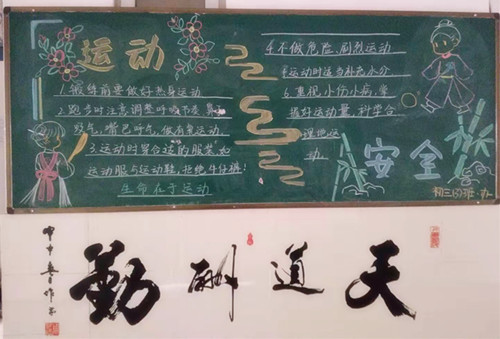 运动
1.锻炼前要做好热身运动
2.跑步时注意调整呼吸节奏 鼻子
吸气,嘴巴呼气,做有氧运动
3.运动时要穿合适的服装,如
运动服与运动鞋,拒绝牛仔裤!
生命在于运动
4.不做危险、剧烈运动
5.运动时适当补充水分
6.重视小伤小病,掌
握好运动量,科学合
理地运
动
安全
初三(3)班 办
天道酬勤